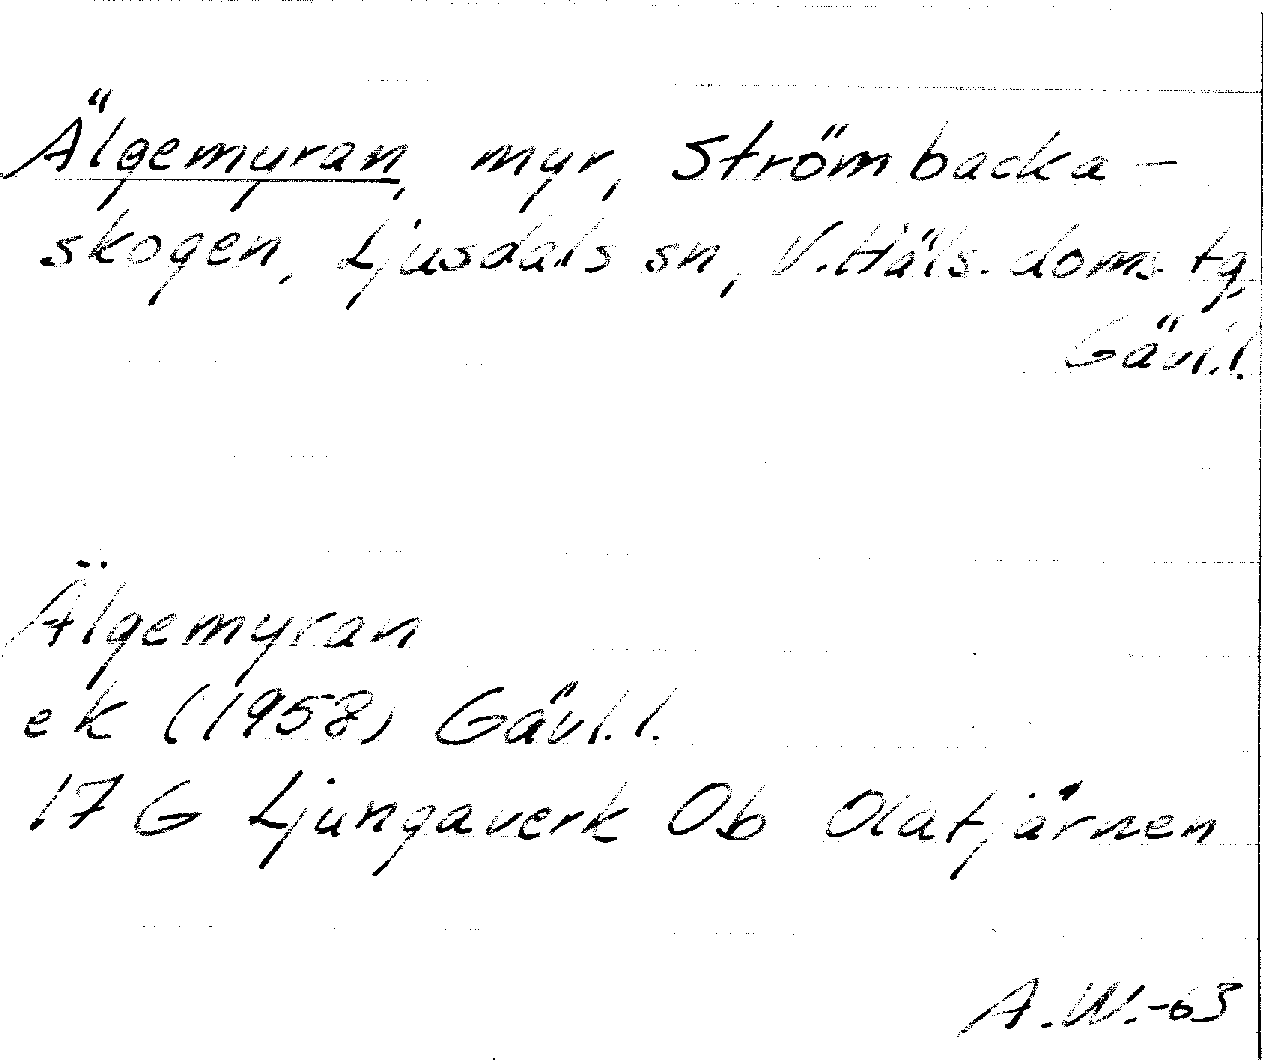 Älgemyran, myr, Strömbacka-
skogen, Ljusdals sn, V. Häls. doms. tg,
Gävl.l.
Älgemyran
ek (1958) Gävl.l.
17 G Ljungaverk Ob Olatjärnen
A.W.-63